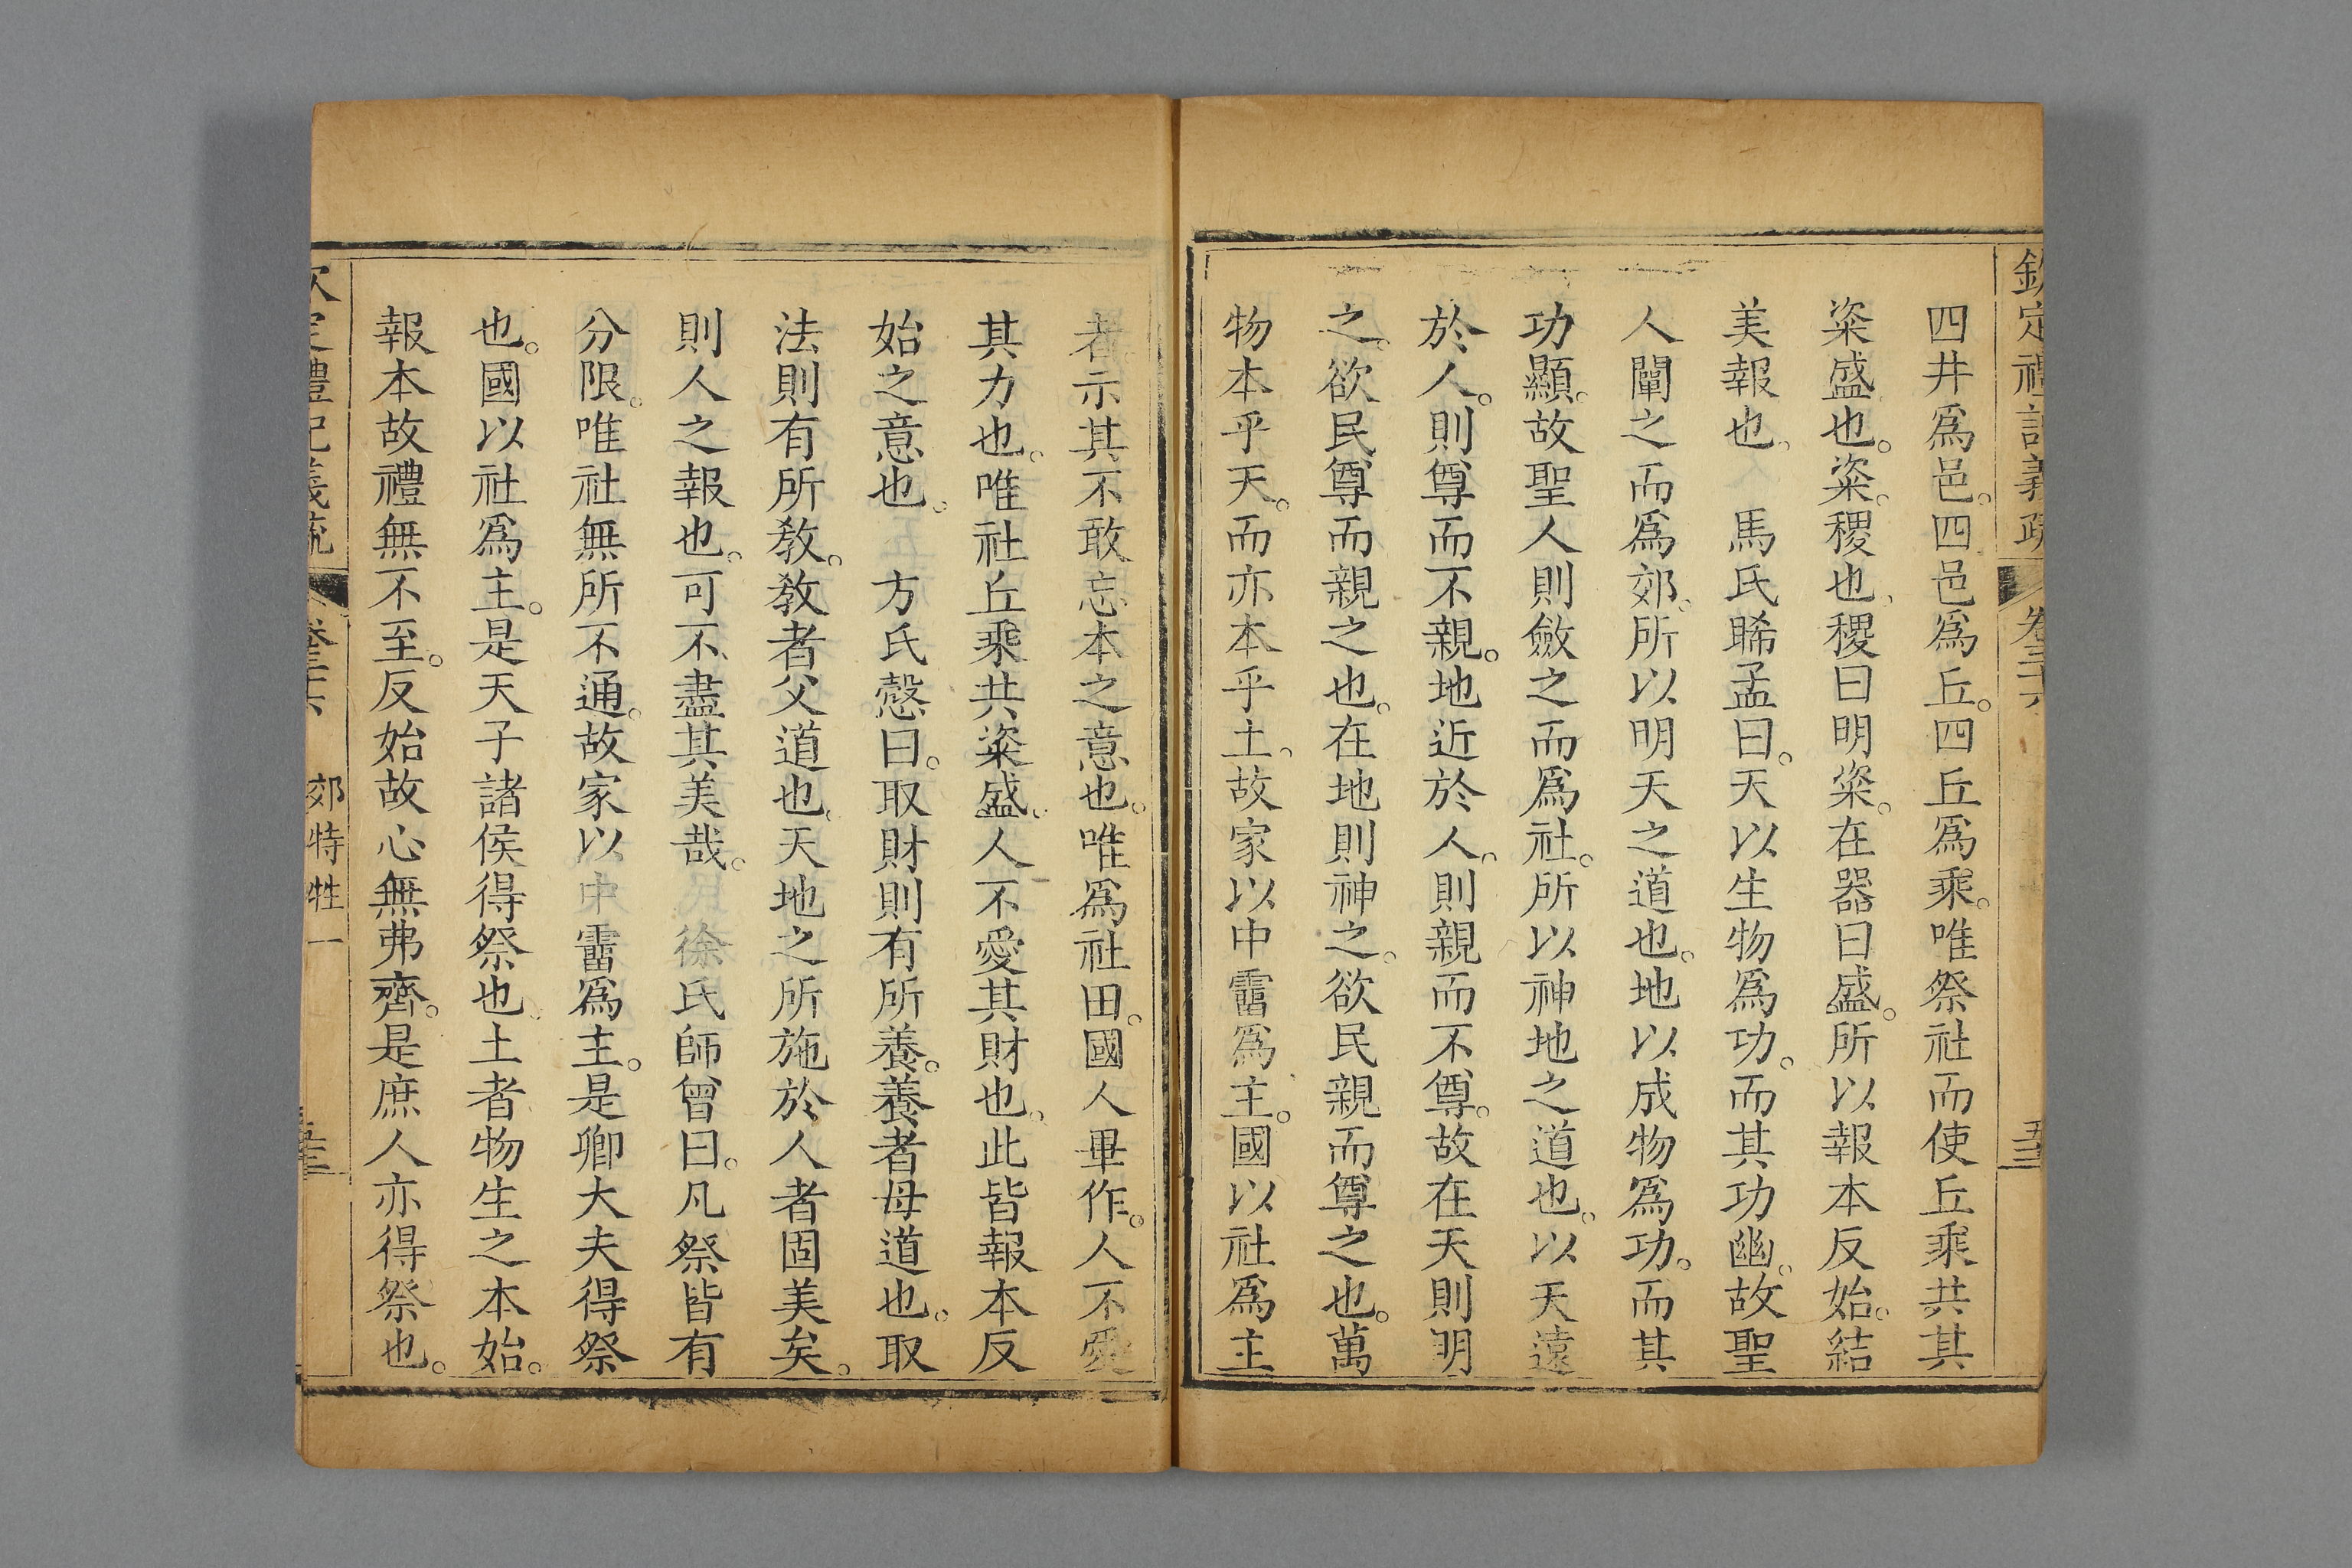 欽定禮記義疏 卷三十六 至
四井爲邑。四邑爲丘。四丘爲乘。唯祭社而使丘乘共其
粢盛也。粢。稷也。稷曰明粢。在器曰盛。所以報本反始。結
美報也。 馬氏睎孟曰。天以生物爲功。而其功幽。故聖
人闡之而爲郊。所以明天之道也。地以成物爲功。而其
功顯。故聖人則斂之而爲社。所以神地之道也。以天遠
於人。則尊而不親。地近於人。則親而不尊。故在天則明
之。欲民尊而親之也。在地則神之。欲民親而尊之也。萬
物本乎天。而亦本乎土。故家以中霤爲主。國以社爲主
者。示其不敢忘本之意也。唯爲社田。國人畢作。人不愛
其力也。唯社丘乘共粢盛。人不愛其財也。此皆報本反
始之意也。 方氏慤曰。取財則有所養。養者母道也。取
法則有所教。教者父道也。天地之所施於人者固美矣。
則人之報也。可不盡其美哉。 徐氏師曾曰。凡祭皆有
分限。唯社無所不通。故家以中霤爲主。是卿大夫得祭
也。國以社爲主。是天子諸侯得祭也。土者物生之本始。
報本故禮無不至。反始故心無弗齊。是庶人亦得祭也。
欽定禮記義疏 卷三十六 郊特牲一